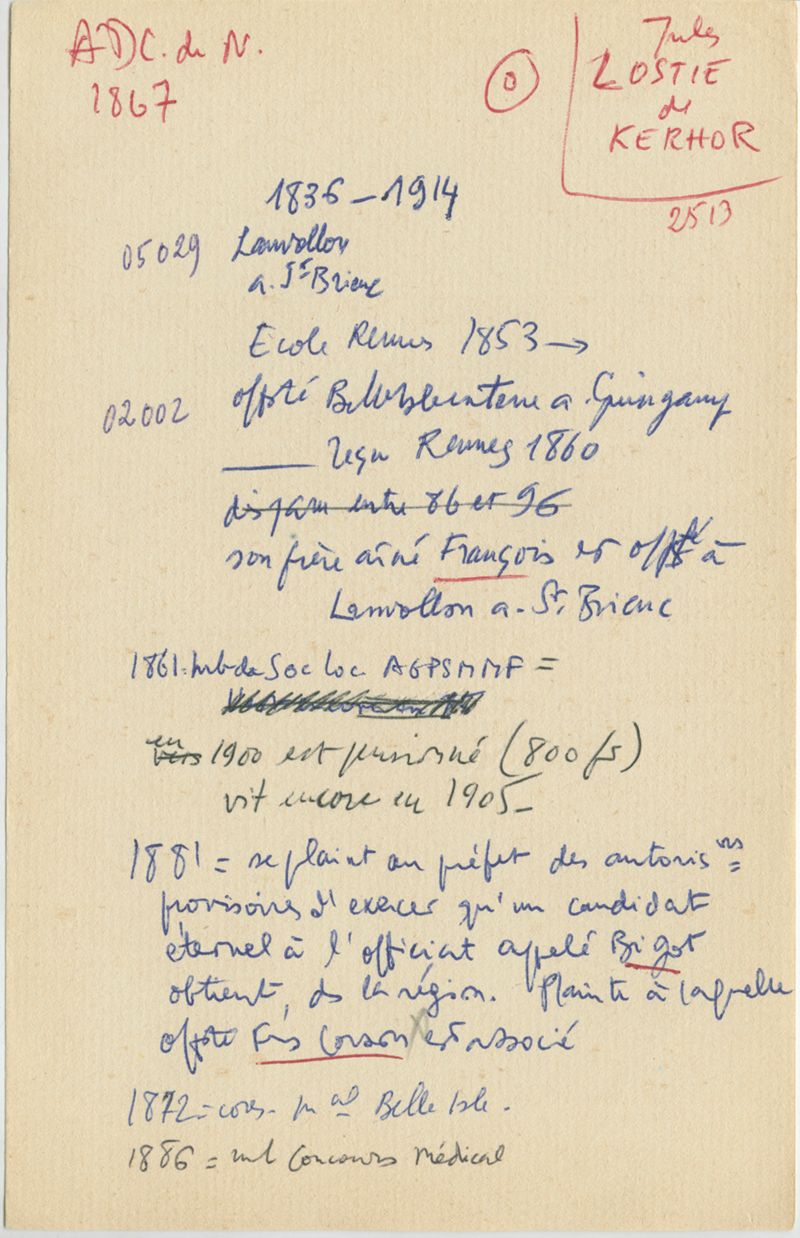 ADC. du N.
1867
0
Jules
LOSTIE
de
KERHOR
2513
1836 – 1914
05029 Lanvollon
a. St Brieuc
Ecole Rennes 1853 →
02002 offsté Belle Isle en terre a. Guingamp
reçu Rennes 1860
disparu entre 86 et 96
son frère aîné François est offsté à
Lanvollon a. St. Brieuc
1861: mb de Soc loc AGPSMMF =
vers en 1900 est pensionné (800 fs)
vit encore en 1905 –
1881 = se plaint au préfet des autoris ons =
provisoires d'exercer qu'un candidat
éternel à l'officiat appelé Bigot
obtient, ds la région. Plainte à laquelle
offsté Fçis Corson est associé
1872 = cons. m al Belle Isle.
1886 = mb Concours Médical